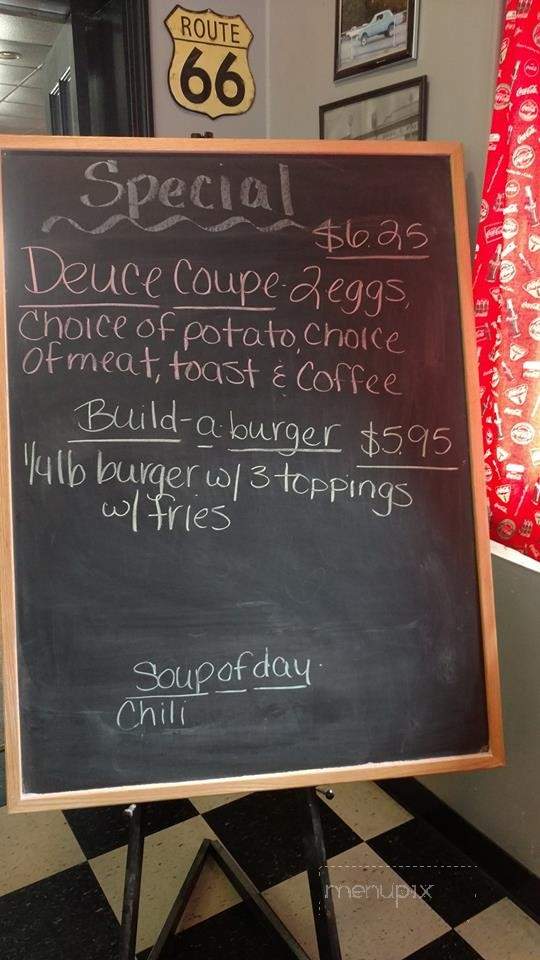 ROUTE
66
Special
$6.25
Deuce Coupe - 2 eggs,
Choice of potato, Choice
Of meat, toast & Coffee
Build-a-burger $5.95
1/4 lb burger w/ 3 toppings
w/ fries
Soup of day
Chili
menupix